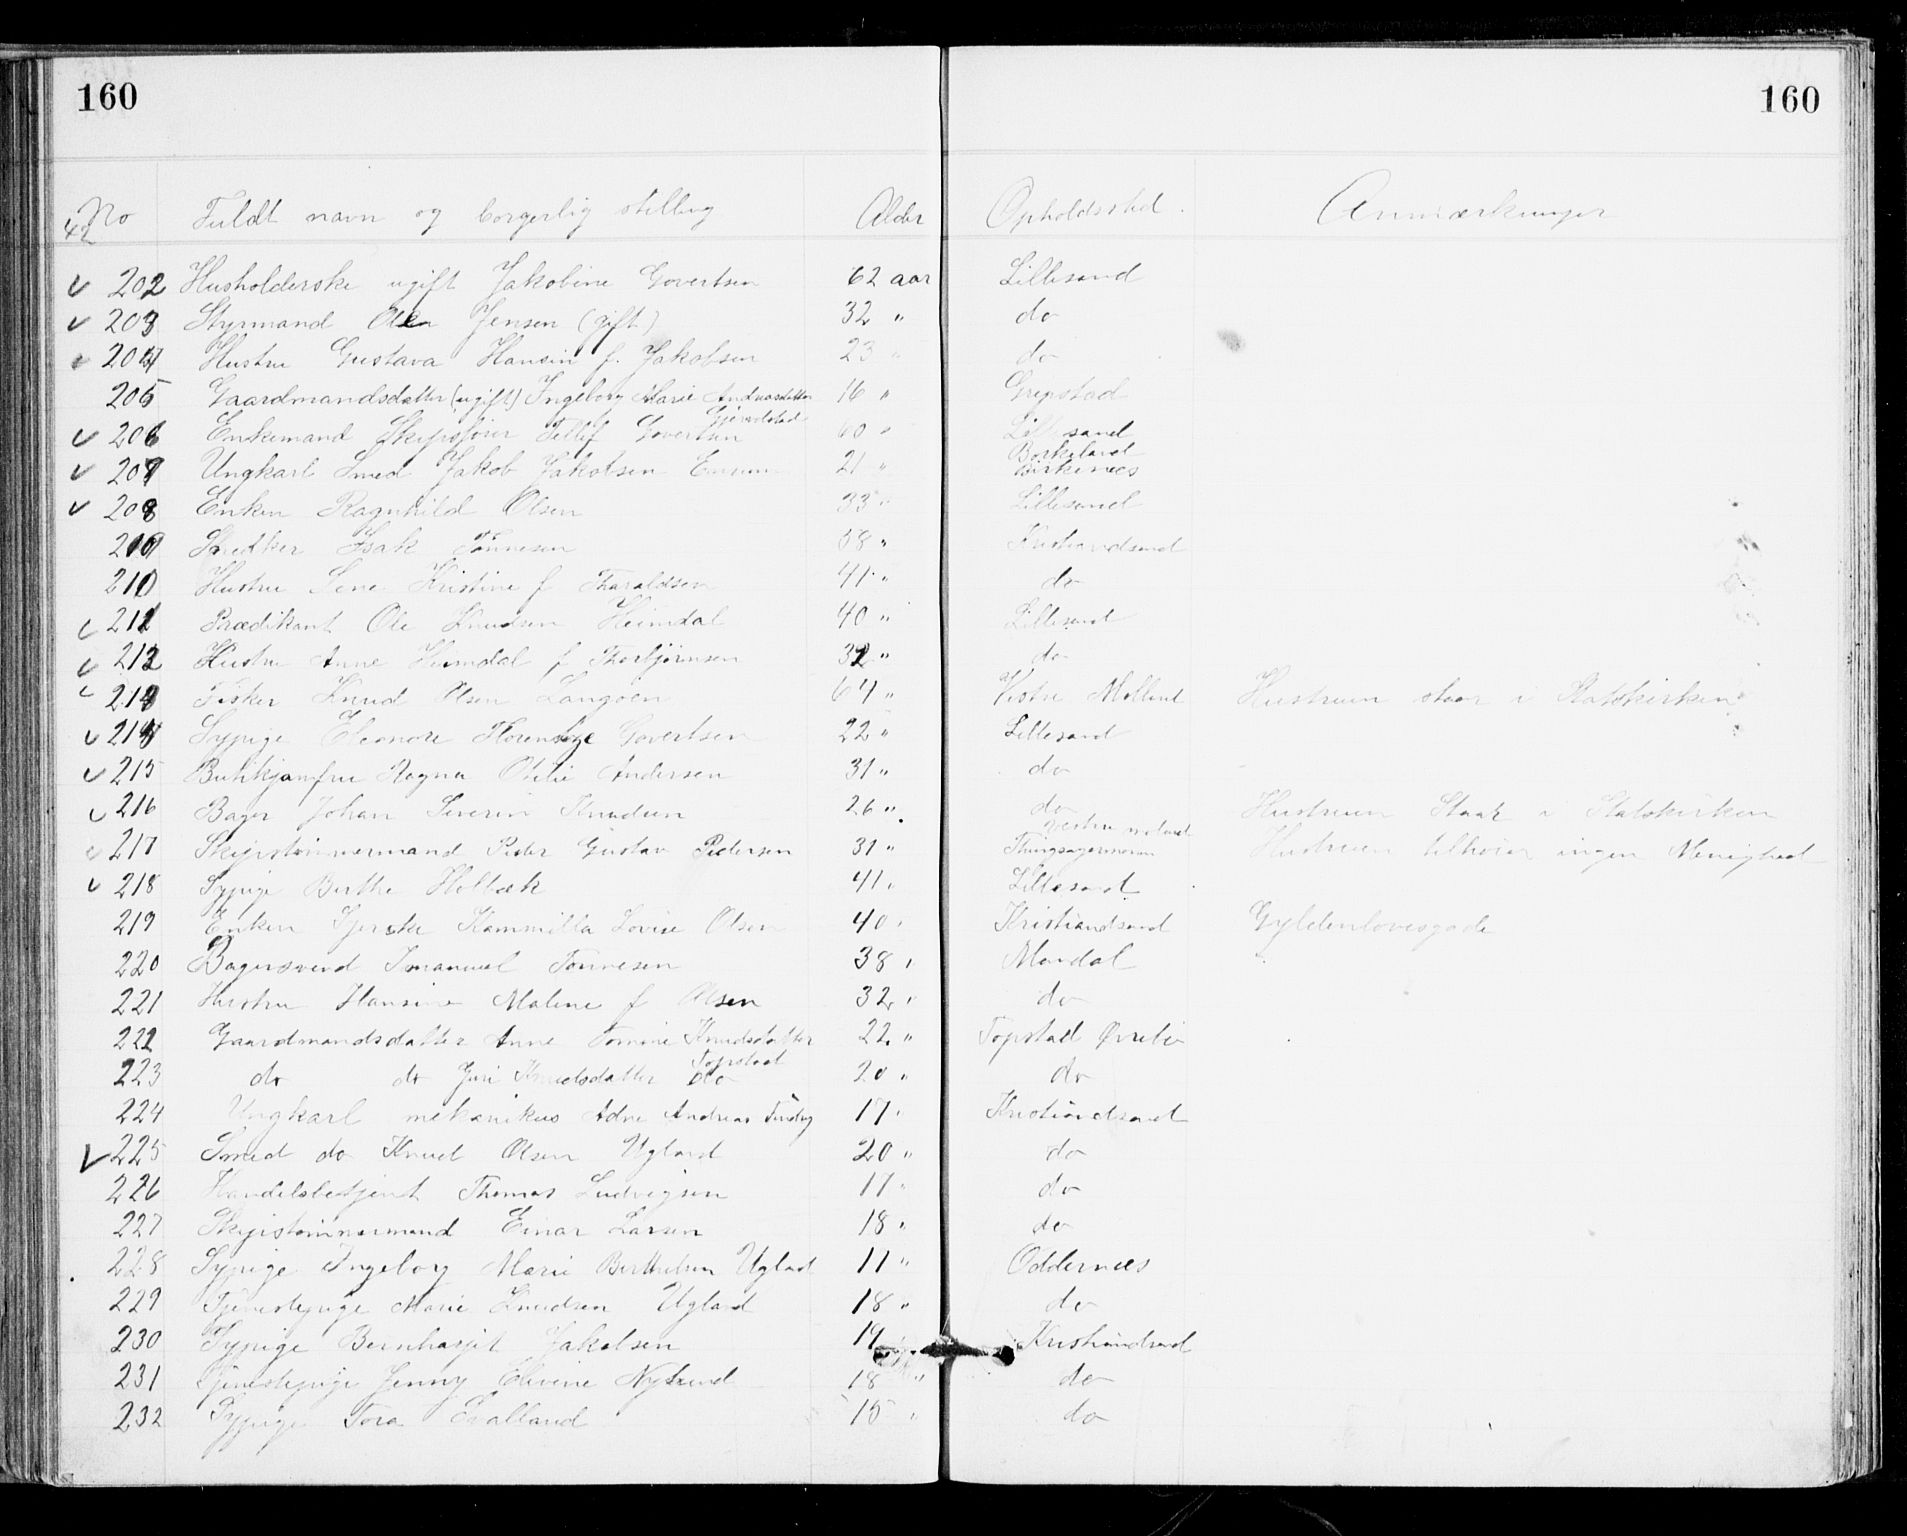 160 160
No Fuldt navn og borgerlig stilling Alder Opholdssted. Anmærkninger
42
202 Husholderske ugift Jakobine Govertsen 62 aar Lillesand
203 Styrmand Olen Jensen (gift) 32 " do
204 Hustru Gustava Hansin f. Jakobsen 23 " do
205 Gaardmandsdatter (ugift) Ingeborg Marie Andreasdatter 16 " Grepstad
Gjerulstad
206 Enkemand Skipsfører Tellef Govertsen 60 " Lillesand
Borkeland
207 Ungkarl Smed Jakob Jakobsen 21 " Birkenes
208 Enken Ragnhild Olsen 33 " Lillesand
209 Snedker Isak Tønnesen 58 " Kristiandsand
210 Hustru Lene Kristine f Tharaldsen 41 " do
211 Prædikant Ole Knudsen Heimdal 40 " Lillesand
212 Hustru Anne Heimdal f Thorbjørnsen 32 " do
213 Fisker Knud Olsen Langøen 64 " Vestre Molland Hustruen staar i Statskirken
214 Sypige Eleonore Horensze Govertsen 22 " Lillesand
215 Butikjomfru Ragna Otilie Andersen 31 " do
216 Bager Johan Severin Knudsen 26 " do Hustruen Staar i Statskirken
vestre moland
217 Skipstømmermand Peder Gustav Pedersen 31 " Hustruen tilhøier ingen Menighed
218 Sypige Birthe Holbæk 41 " Lillesand
219 Enken Syerske Kammilla Lovise Olsen 40 " Kristiandsand Gyldenlovesgade
220 Bagersvend Imanuel Tønnesen 38 " Mandal
221 Hustru Hansine Maline f Olsen 32 " do
222 Gaardmandsdatter Anne Tomine Knudsdatter 22 " Topstad Øvrebø
Topstad
223 do do Guri Knudsdatter do 20 " do
224 Ungkarl mekanikus Adne Andreas 17 " Kristiandsand
225 Smed do Knud Olsen Ugland 20 " do
226 Handelsbetjent Thomas Ludvigsen 17 " do
227 Skipstømmermand Einar Larsen 18 " do
228 Sypige Ingeborg Marie Berthelsen Ugland 11 " Oddernæs
229 Tjenestepige Marie Knudsen Ugland 18 " do
230 Sypige Bernharjit Jakobsen 19 Kristiandsand
231 Tjenestepige Jenny Elivine Nylund 18 " do
232 Sypige Tora Evalland 15 " do